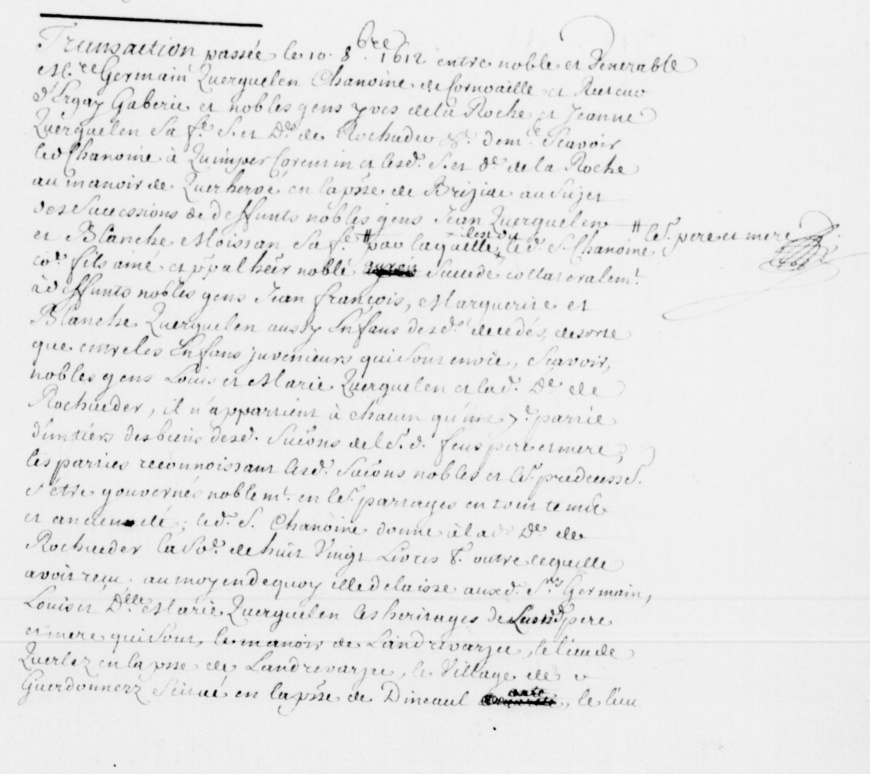 Transaction passée le 10. 8bre. 1612 entre noble et Venerable
Mre. Germain Querguelen Chanoine de Cornoaille et Recteur
d'Ergay Gaberic et nobles gens Yves de la Roche et Jeanne
Querguelen sa fe. S. et De. de Rochuder &. demt. Scavoir
led Chanoine à Quimper Corentin et lesd. S. et de. de la Roche
au manoir de Querhervé en la psse de Briziac au Sujet
des Sucessions de deffunts nobles gens Jean Querguelen # les. pere et mere
et Blanche Moissan Sa fe. # par laquelle led. S. Chanoine
co. fils ainé et ppal heer noble Succede collateralemt.
à deffunts nobles gens Jean françois, Marguerite et
Blanche Querguelen aussy Enfans desd. decedés, de sorte
que entre les Enfans juvenieurs qui Sont en vie, Scavoir,
nobles gens Louis et Marie Querguelen et lad. De. de
Rochueder, il n'appartient à chacun qu'une 7e. partie
d'un tiers des biens desd. Sucons de ls. d. feus pere et mere,
les parties reconnoissant lesd. Sucons nobles et ls. predecess.
s'etre gouvernés noblemt. en ls. partages en tout temps
et ancienneté; led. S. Chanoine donne à lad. De. de
Rochueder la Soe. de huit Vingt Livres t. outre laquelle
avoir reçu, au moyen de quoy elle delaisse auxd. Srs. Germain,
Louis et Dlle. Marie Querguelen les heritages de Leursd. pere
et mere qui Sont, le manoir de Landrevarzec, le lieu de
Querlez en la psse de Landrevarzec, le Village de
Guerdonnerz Scitué en la psse de Dineaul, le lieu